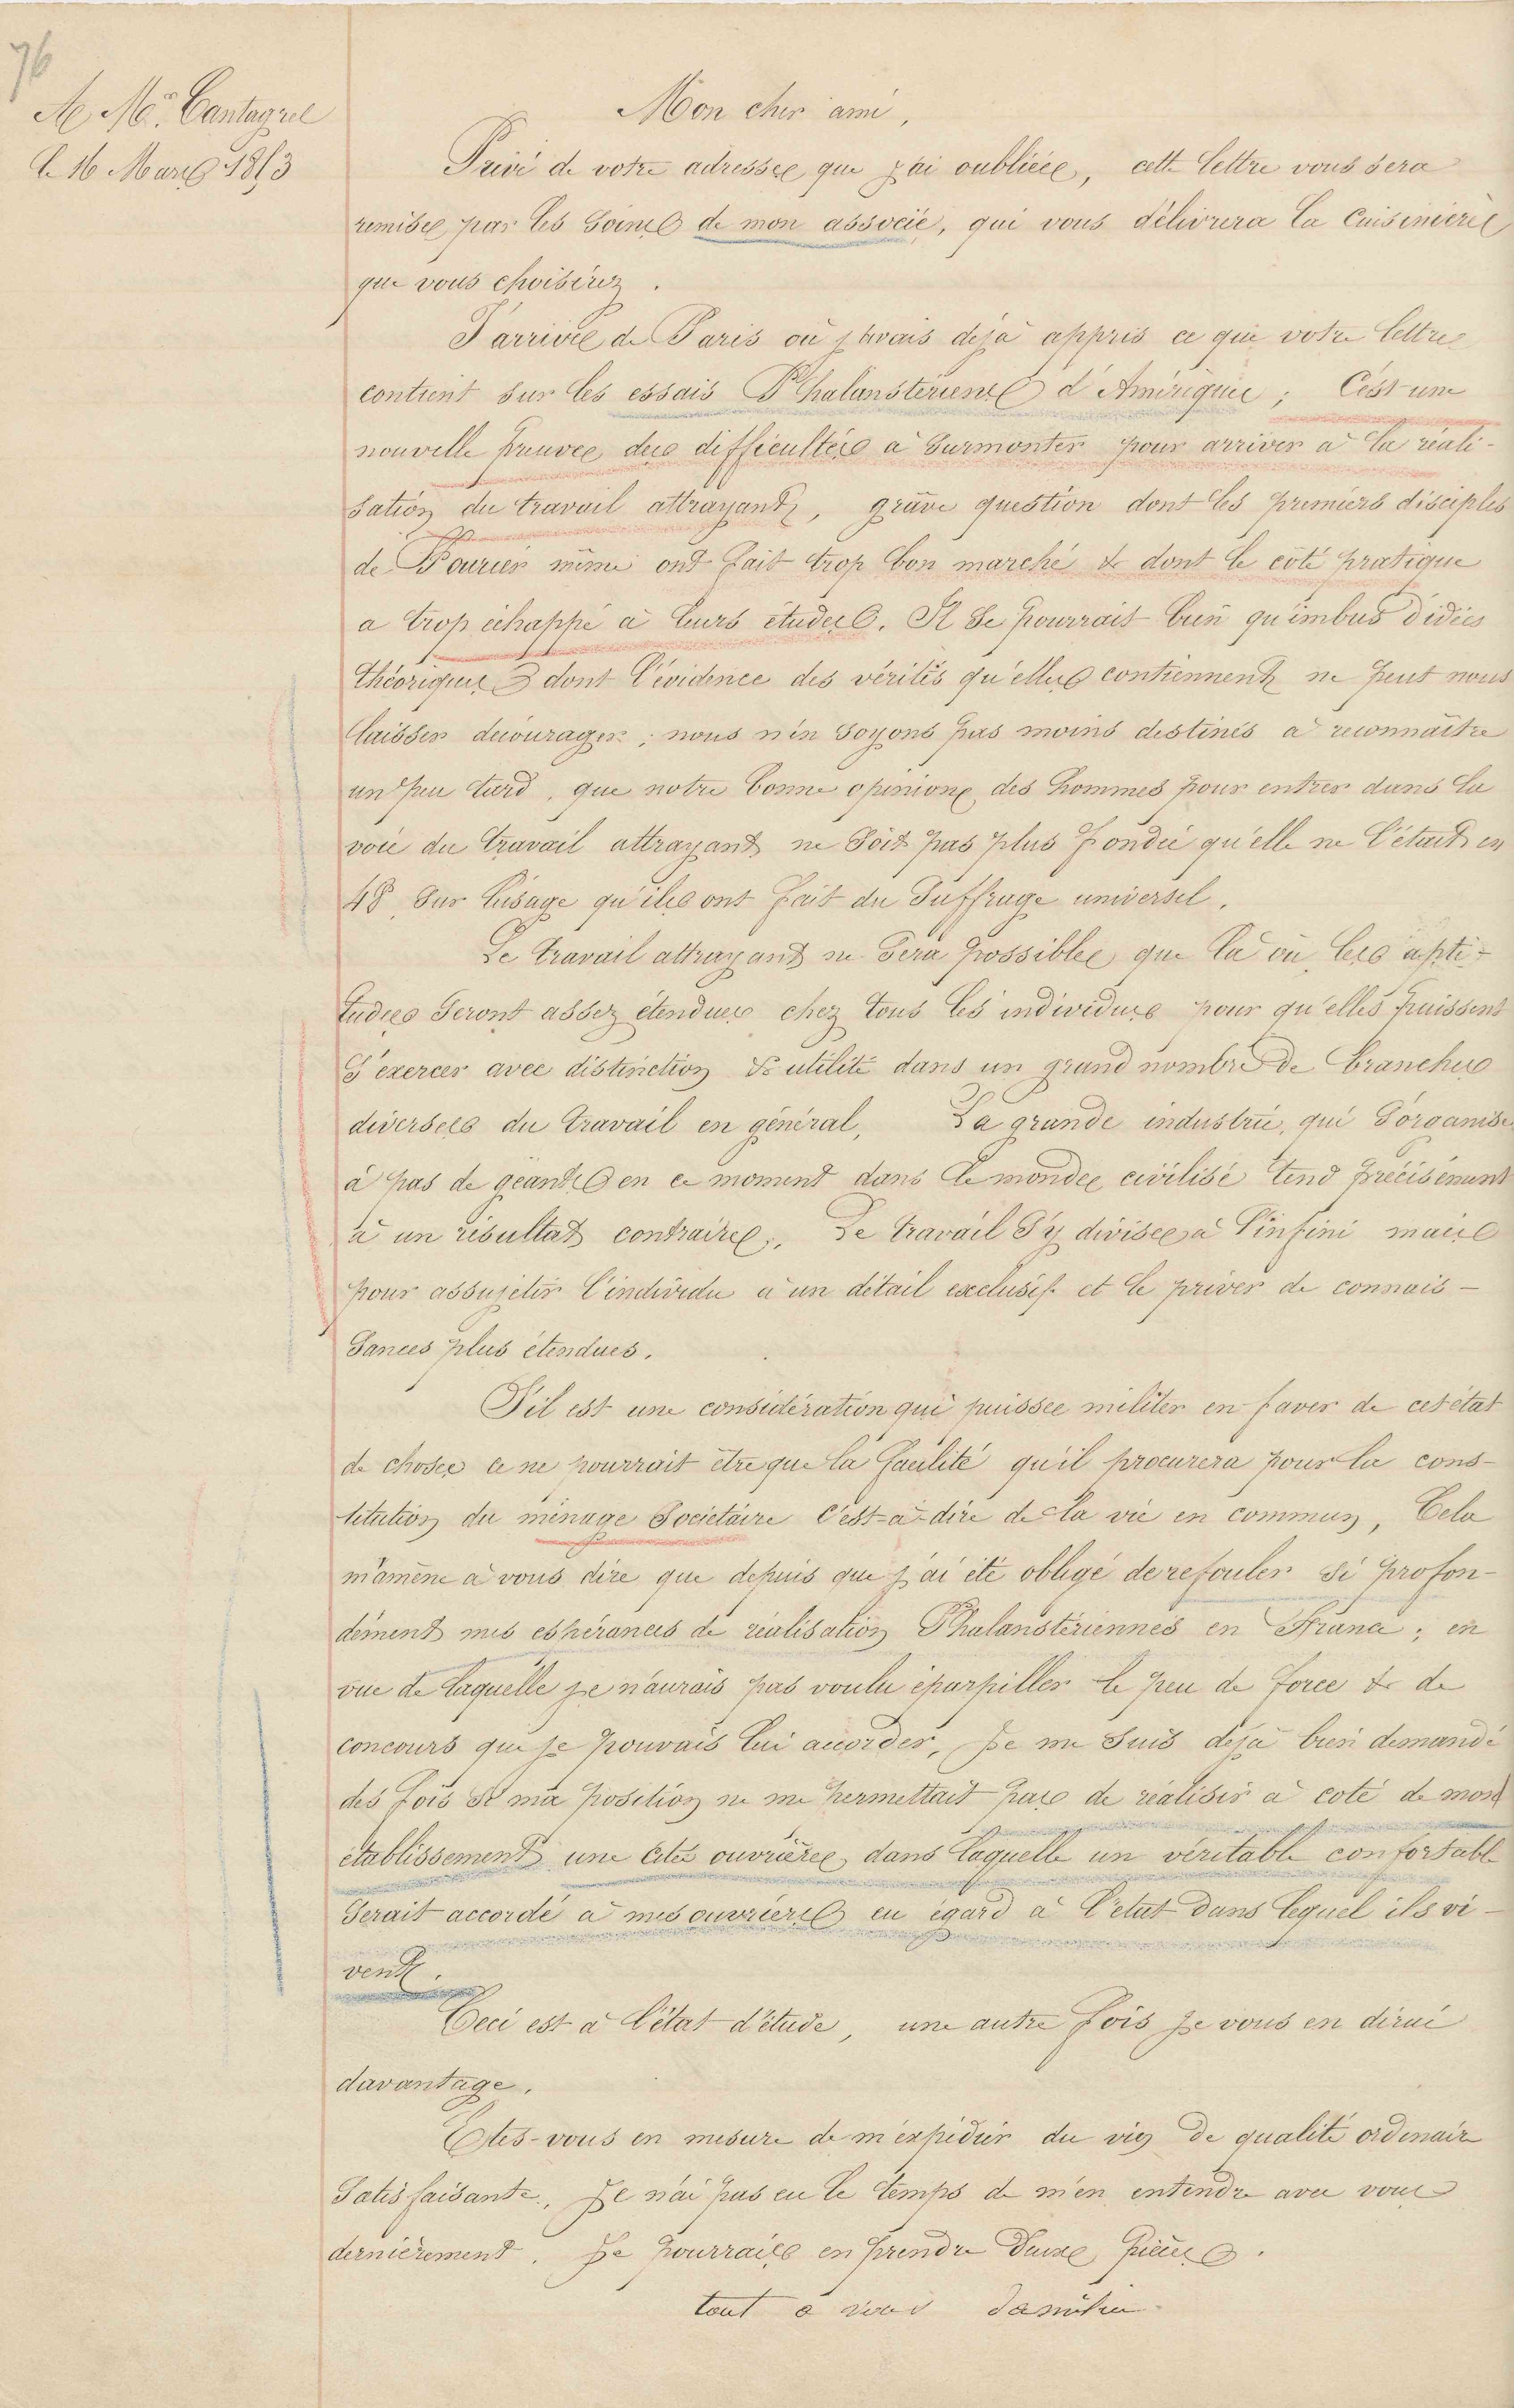 76
A Mr. Cantagrel
le 16 Mars 1853
Mon cher ami,
Privé de votre adresse que j'ai oubliée, cette lettre vous sera
remise par les soins de mon associé, qui vous délivrera la cuisinière
que vous choisirez.
J'arrive de Paris où j'avais déjà appris ce que votre lettre
contient sur les essais Phalanstériens d'Amérique; C'est une
nouvelle preuve des difficultés à surmonter pour arriver à la réali-
sation du travail attrayant, grave question dont les premiers disciples
de Fourier même ont fait trop bon marché & dont le côté pratique
a trop échappé à leurs études. Il se pourrait bien qu'imbus d'idées
théoriques dont l'évidence des vérités qu'elles contiennent ne peut nous
laisser décourager; nous n'en soyons pas moins destinés à reconnaître
un peu tard, que notre bonne opinion des hommes pour entrer dans la
voie du travail attrayant ne soit pas plus fondée qu'elle ne l'était en
48, sur l'usage qu'ils ont fait du suffrage universel.
Le travail attrayant ne sera possible que là où les apti-
tudes seront assez étendues chez tous les individus pour qu'elles puissent
s'exercer avec distinction & utilité dans un grand nombre de branches
diverses du travail en général, La grande industrie, qui s'organise
à pas de géants en ce moment dans le monde civilisé tend précisément
à un résultat contraire. Le travail s'y divise à l'infini mais
pour assujétir l'individu à un détail exclusif et le priver de connais-
sances plus étendues.
S'il est une considération qui puisse militer en faver de cet état
de chose ce ne pourrait être que la facilité qu'il procurera pour la cons-
titution du ménage Sociétaire c'est-à-dire de la vie en commun, Cela
m'amène à vous dire que depuis que j'ai été obligé de refouler si profon-
dément mes espérances de réalisation Phalanstériennes en France; en
vue de laquelle je n'aurais pas voulu éparpiller le peu de force & de
concours que je pouvais lui accorder, Je me suis déjà bien demandé
des fois si ma position ne me permettait pas de réaliser à coté de mon
établissement une cité ouvrière, dans laquelle un véritable confortable
serait accordé à mes ouvriers eu égard à l'état dans lequel ils vi-
vent.
Ceci est à l'état d'étude, une autre fois je vous en dirai
davantage.
Etes-vous en mesure de m'expédier du vin de qualité ordinaire
satisfaisante, Je n'ai pas eu le temps de m'en entendre avec vous
dernièrement. Je pourrais en prendre deux pièces.
tout à vous d'amitié